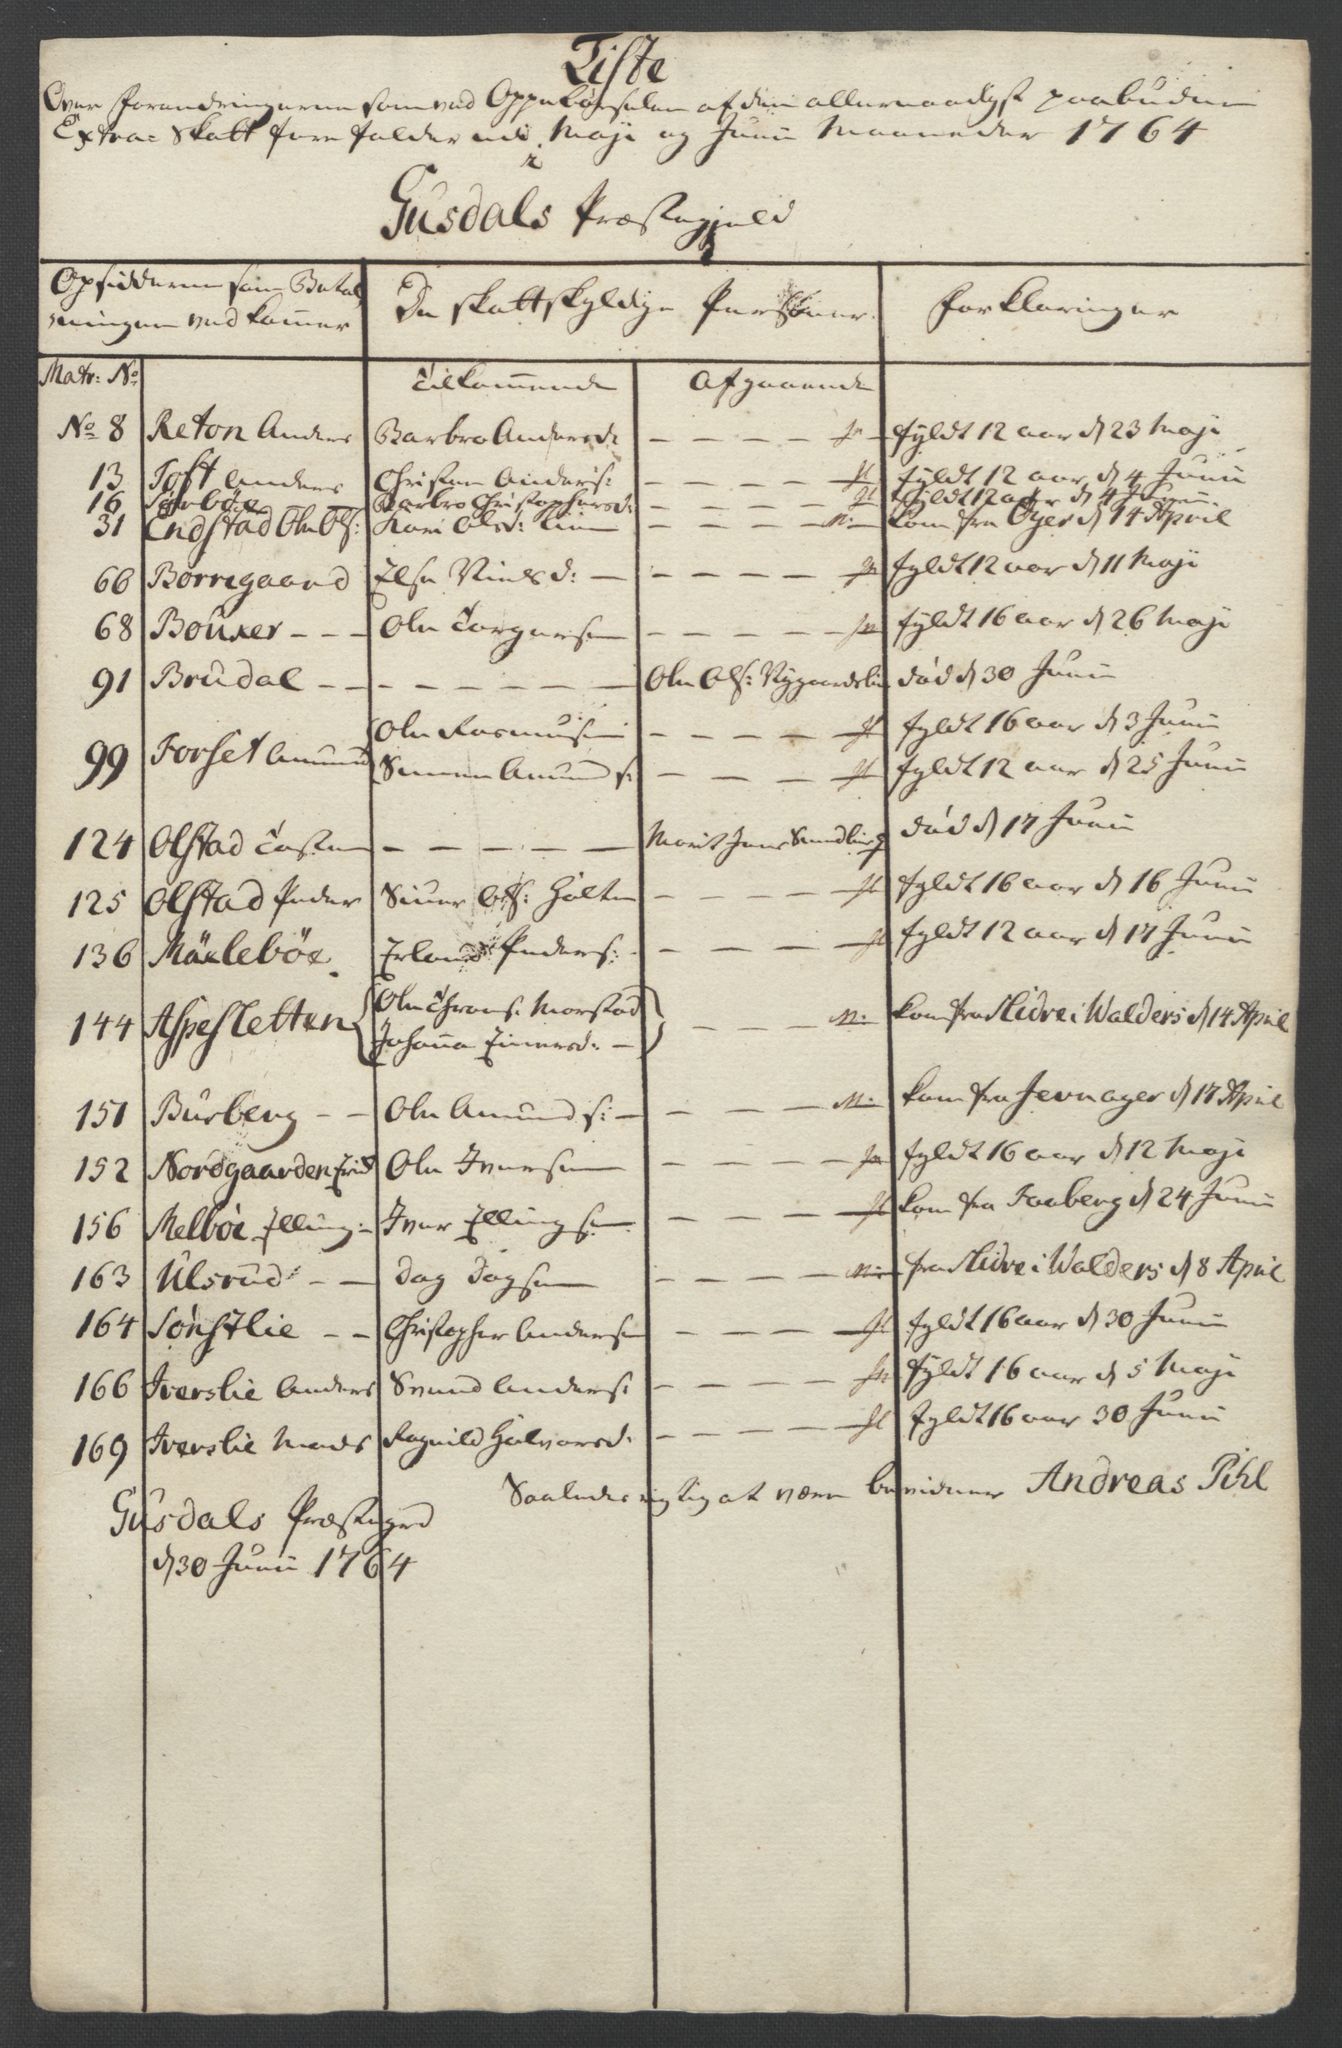 Liste
Over forandringerne som ved Oppebørselen af den allernaadigst paabudne
Extra- Skatt fore falder udi Maji og Junii Maaneder 1764
i
Gusdals Præstegield
Opsidderne som Betal
ningen vedkommer
De skattskyldige Personer
forklaringer
Matr: No
Tilkommende
Afgaaende
No 8 Reton Anders Barbro Andersd: fyldt 12 aar d 23 Maji
13 Toft Anders Christen Anders: fyldt 12 aar d 4 Junii
16 Sørbøe Barbro Christophersd: fyldt 12 aar d 4 Junii
31 Endstad Ole Ols: Kari Olsd: M: kom fra Øyer d 14 April
66 Borregaard Else Nielsd: fyldt 12 aar d 11 Maji
68 Bouxer Ole Torgersen fyldt 16 aar d 26 Maji
91 Brudal Ole Ols: Nygaardslie død d 30 Junii
99 Forset Amund Ole Rasmusen fyldt 16 aar d 3 Junii
Simen Amunds: fyldt 12 aar d 25 Junii
124 Olstad Tosten Marit Jens Sundlien død d 17 Junii
125 Olstad Peder Siver Ols: Holte fyldt 16 aar d 16 Junii
136 Mæhlebøe Erland Peders: fyldt 12 aar d 17 Junii
144 Aspesletten Ole Throns: Morstad
Johanna Einersd: M: kom fra Slidre i Walders d 14 April
151 Burberg Ole Amunds: M: kom fra Jevnager d 17 April
152 Nordgaarden Ole Iversen fyldt 16 aar d 12 Maji
156 Melbøe Elling Iver Ellingsen kom fra Faaberg d 24 Junii
163 Ulsrud Dag Dagsen M: fra Slidre i Walders d 8 April
164 Sønstlie Christopher Andersen fyldt 16 aar d 30 Junii
166 Iverslie Anders Svend Anders: fyldt 16 aar d 5 Maji
169 Iverslie Mads Ragnild Halvorsd: fyldt 16 aar 30 Junii
Saaledes rigtig at være bevidner Andreas Pihl
Gusdals Præstegrd
d 30 Junii 1764